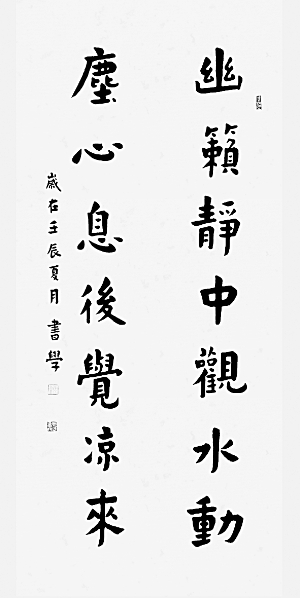 幽籟靜中觀水動
塵心息後覺凉來
歲在壬辰夏月書學